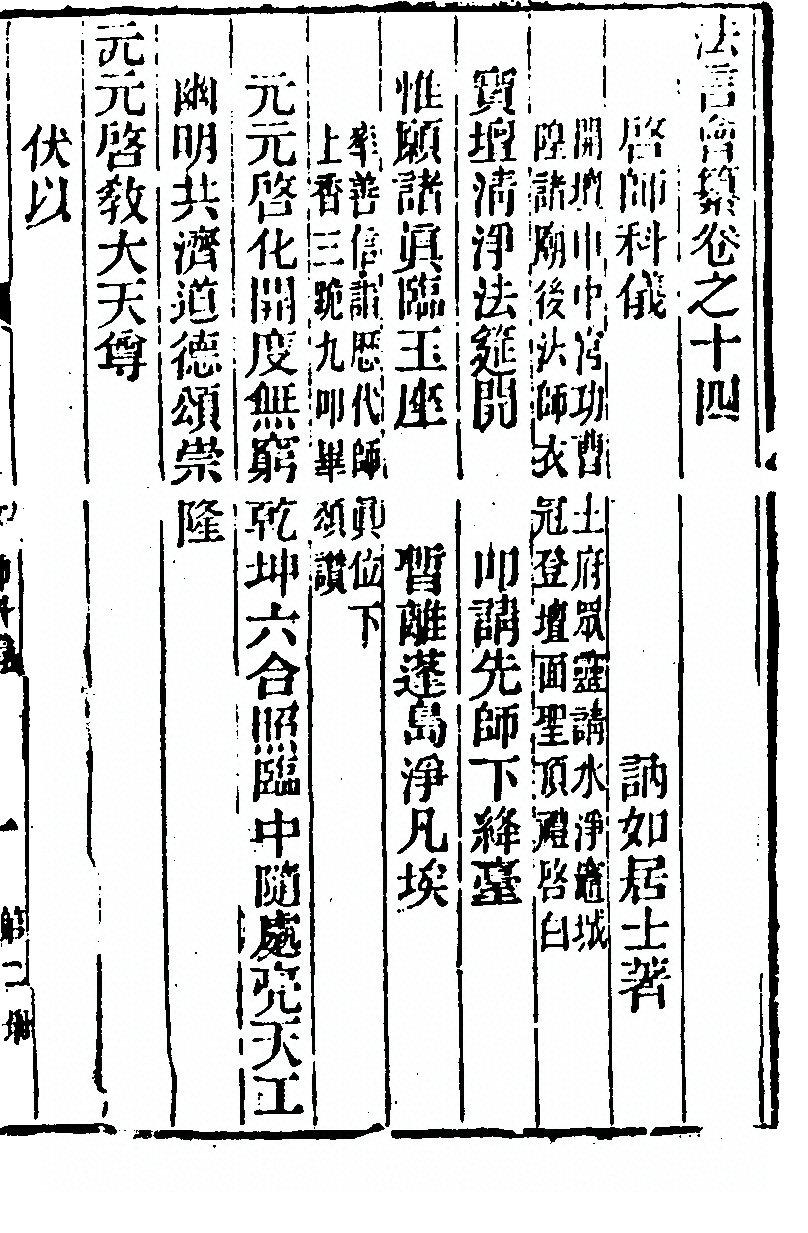 法言會纂卷之十四
啓師科儀　訥如居士著
開壇申中宮功曹土府眾靈請水淨竈城
隍諸廟後法師衣冠登壇面聖頂禮啓白
寶壇清淨法筵開　叩請先師下絳臺
惟願諸眞臨玉座　暫離蓬島淨凡埃
率善信詣歷代師眞位下
上香三跪九叩畢頌讚
元元啓化開度無窮乾坤六合照臨中隨處亮天工
幽明共濟道德頌崇隆
元元啓教大天尊
伏以
師科儀
一
第二册